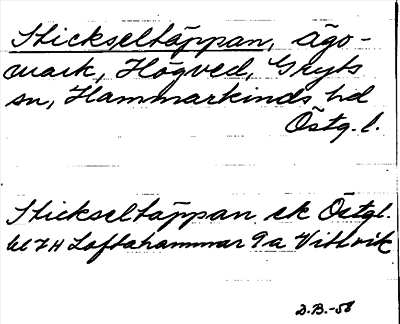 Stickseltäppan, ägo-
mark, Högved, Gryts
sn, Hammarkinds hd
Östg. l.
Stickseltäppan ek Östgl.
bl 7H Loftahammar 9a Vittvik
D.B.-58